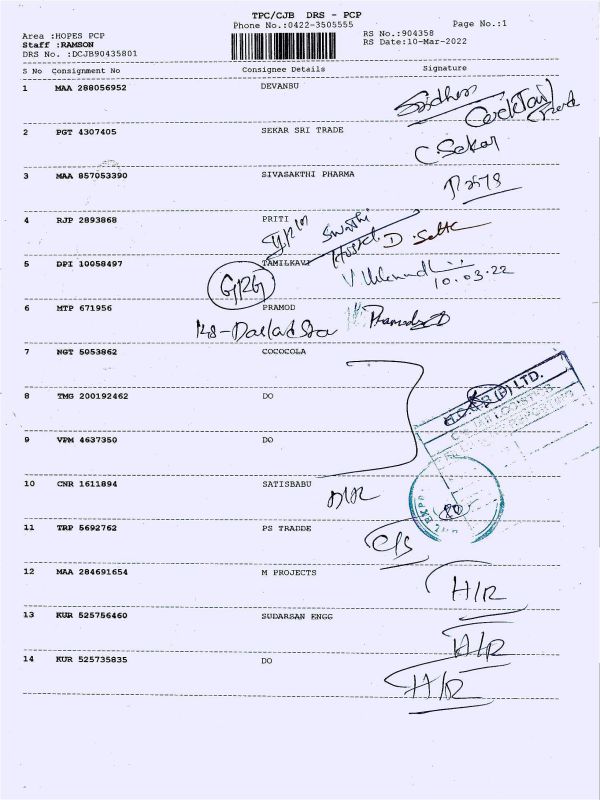 TPC/CJB DRS - PCP
Phone No.:0422-3505555
Page No.:1
Area :HOPES PCP
Staff :RAMSON
DRS No. :DCJB90435801
RS No.:904358
RS Date:10-Mar-2022
S No Consignment No Consignee Details Signature
1 MAA 288056952 DEVANBU
Sridhar
2 PGT 4307405 SEKAR SRI TRADE
C. Sekar
3 MAA 857053390 SIVASAKTHI PHARMA
4 RJP 2893868 PRITI
Swathi
Hostel
5 DPI 10058497 TAMILKAVI
10.03.22
6 MTP 671956 PRAMOD
Pramod
7 NGT 5053862 COCOCOLA
8 TMG 200192462 DO
(P) LTD.
9 VPM 4637350 DO
10 CNR 1611894 SATISBABU
11 TRP 5692762 PS TRADDE
12 MAA 284691654 M PROJECTS
H/R
13 KUR 525756460 SUDARSAN ENGG
H/R
14 KUR 525735835 DO
H/R